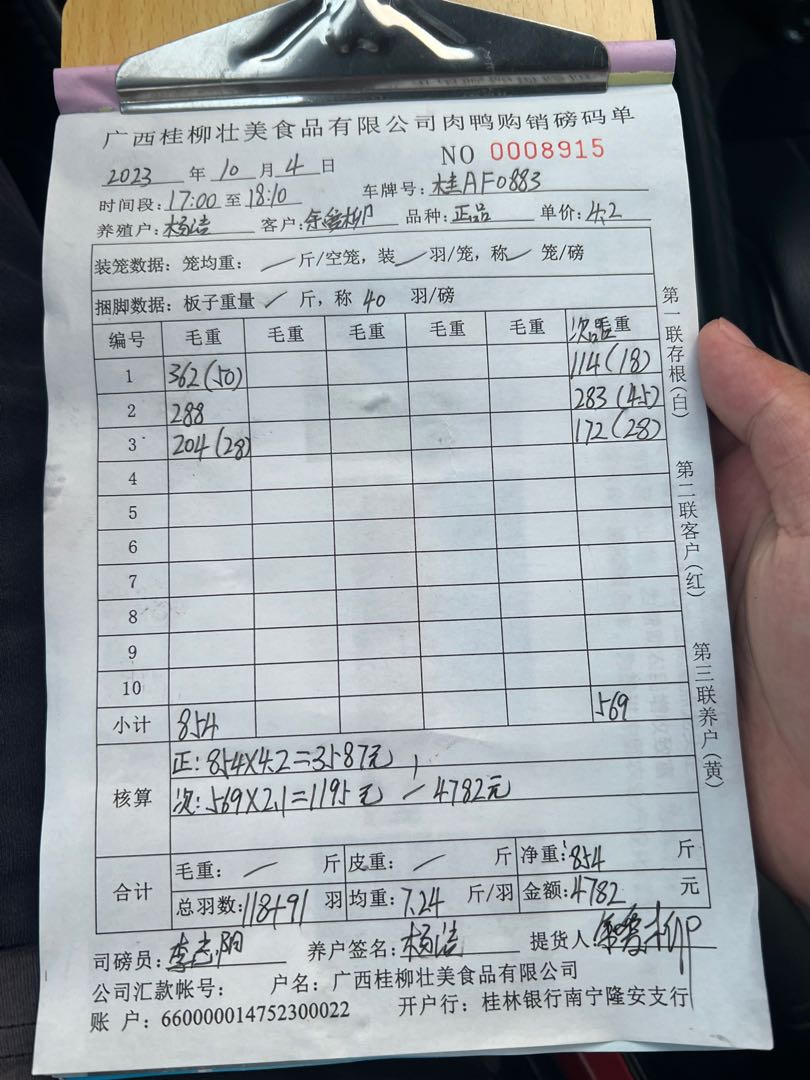 广西桂柳壮美食品有限公司肉鸭购销磅码单
2023 年 10 月 4 日 NO 0008915
时间段: 17:00 至 18:10 车牌号: 桂AF0883
养殖户: 杨洁 客户: 柳 品种: 正品 单价: 4.2
装笼数据: 笼均重: / 斤/空笼, 装 / 羽/笼, 称 / 笼/磅
捆脚数据: 板子重量 / 斤, 称 40 羽/磅
编号 毛重 毛重 毛重 毛重 毛重 次品重
1 362(50) 114(18)
2 288 283(45)
3 204(28) 172(28)
4
5
6
7
8
9
10
小计 854 569
核算 正: 854×4.2=3587元
次: 569×2.1=1195元 — 4782元
合计 毛重: / 斤 皮重: / 斤 净重: 854 斤
总羽数: 118+91 羽 均重: 7.24 斤/羽 金额: 4782 元
司磅员: 李志阳 养户签名: 杨洁 提货人: 柳
公司汇款帐号: 户名: 广西桂柳壮美食品有限公司
账 户: 660000014752300022 开户行: 桂林银行南宁隆安支行
第一联存根(白)
第二联客户(红)
第三联养户(黄)